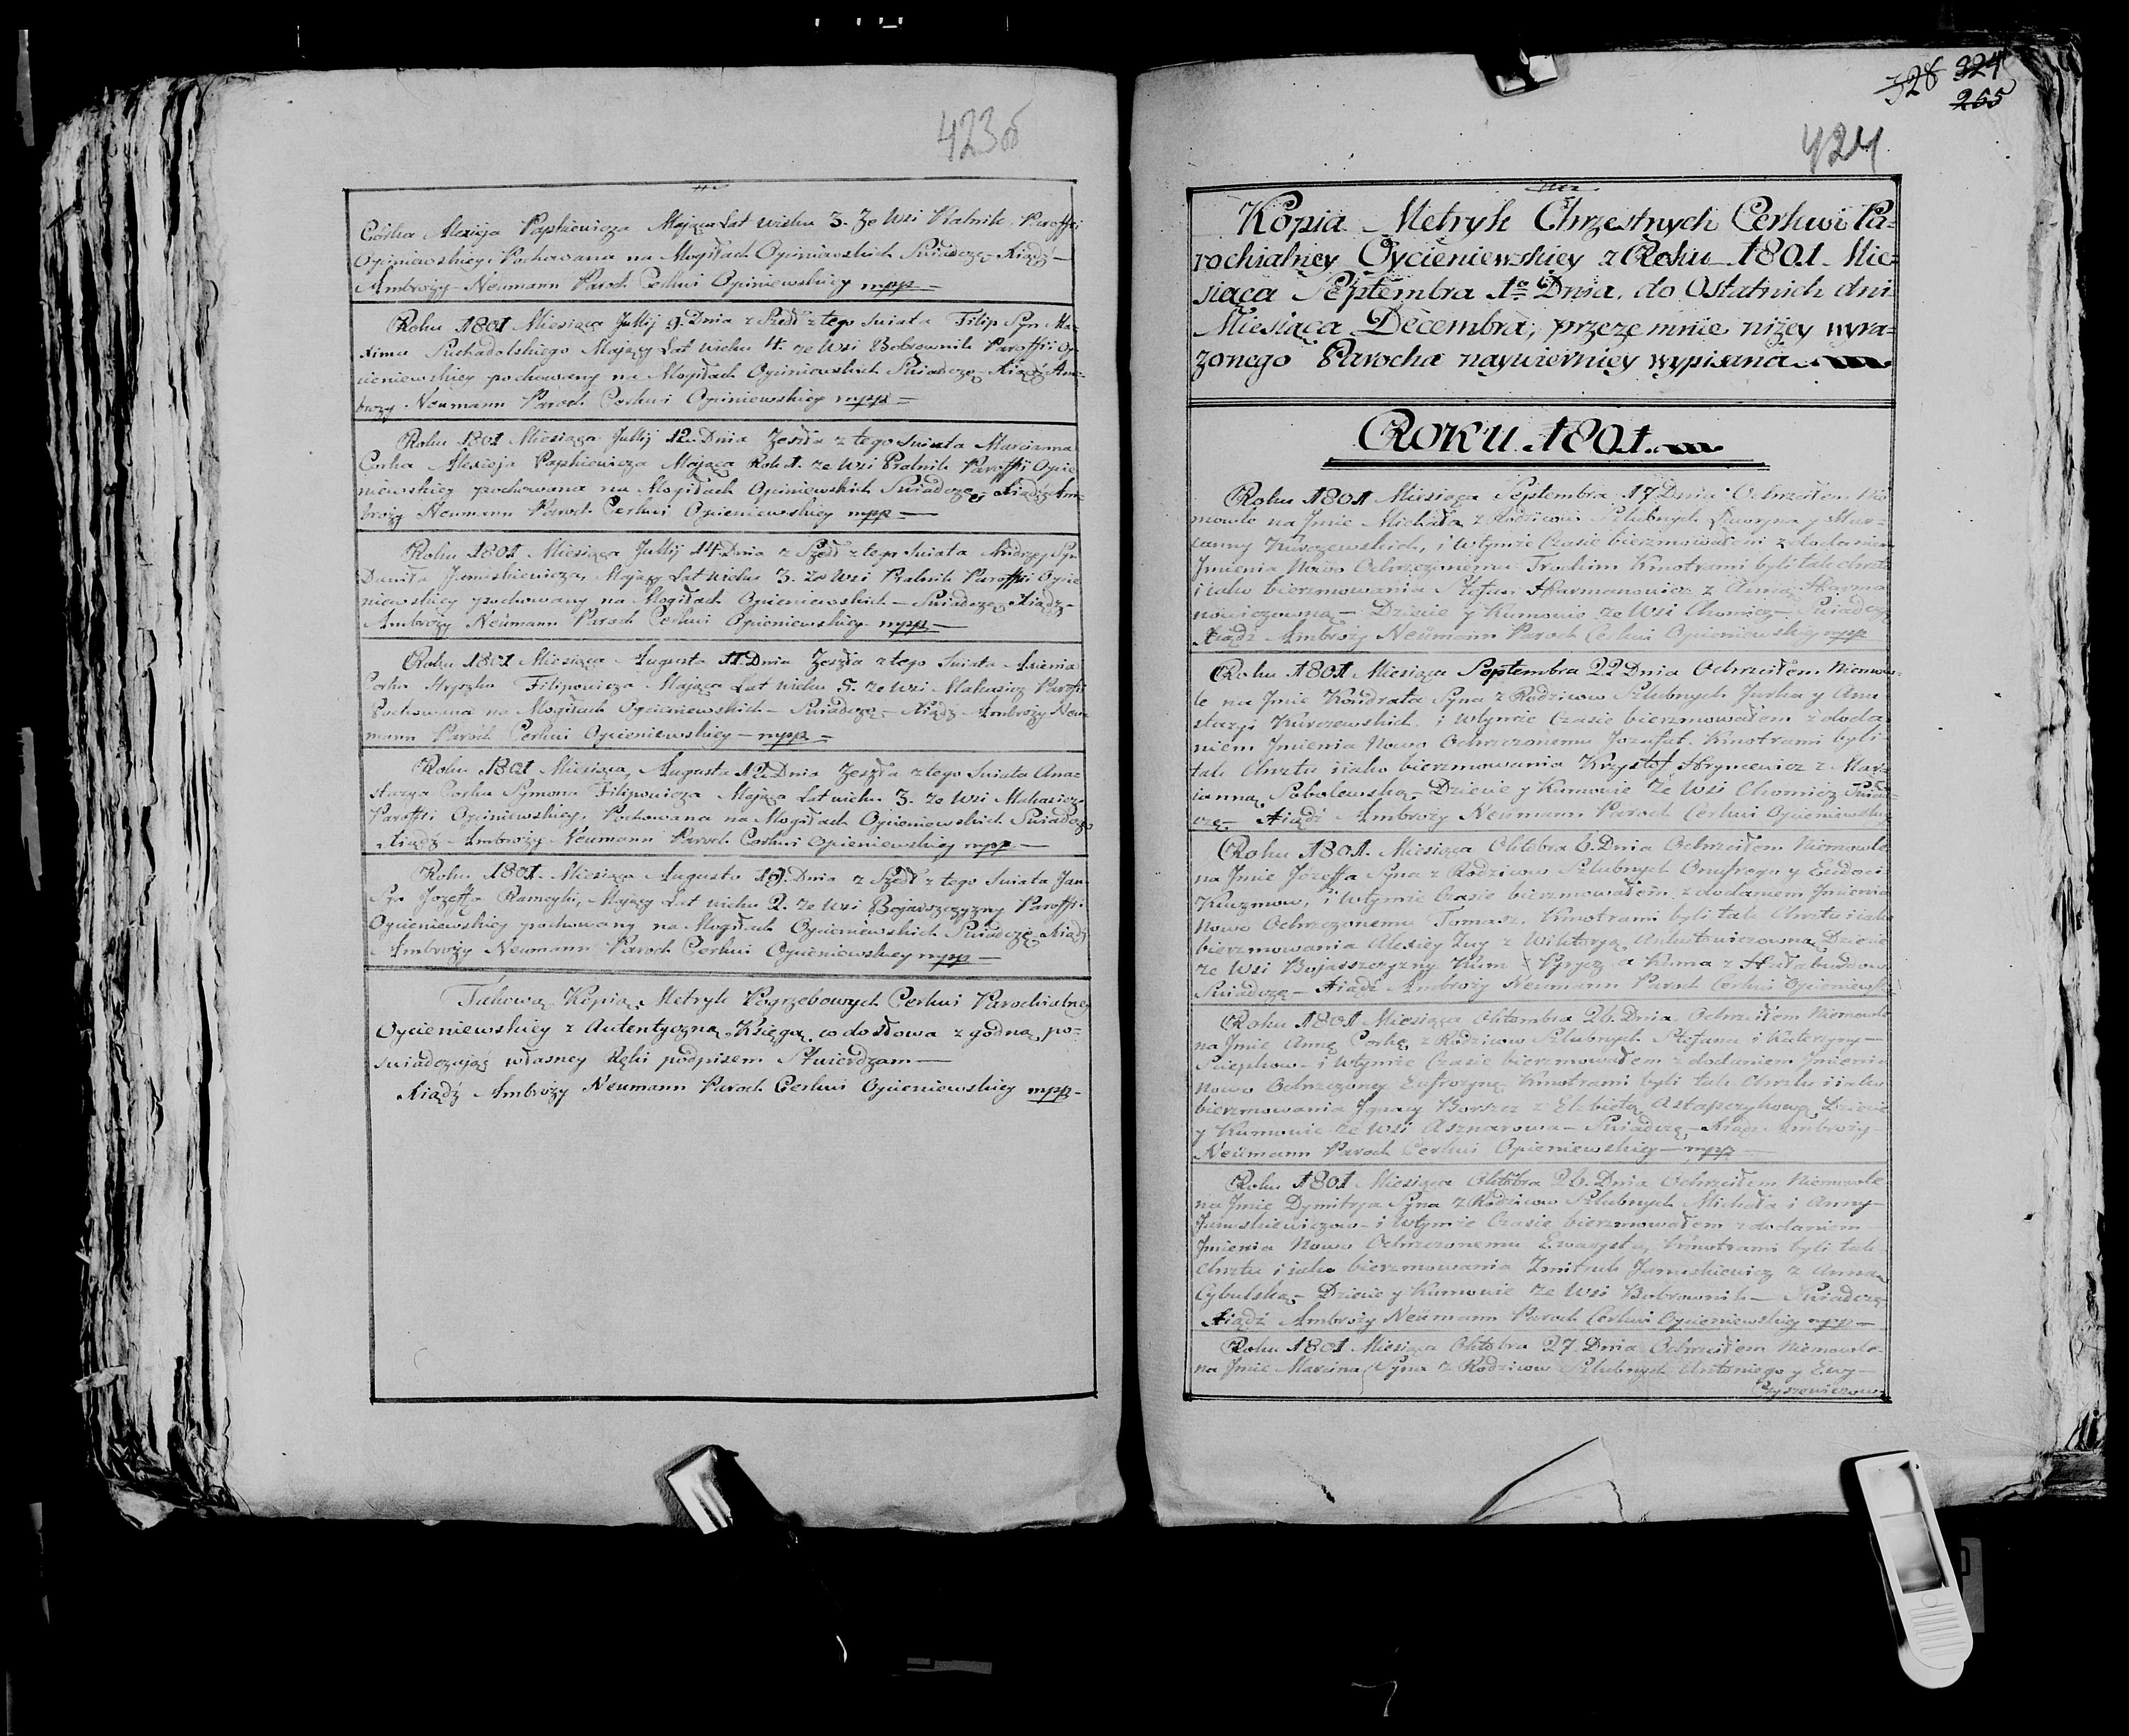 423 об
Córka Alexieja Papkiewicza Mająca Lat wieku 3. Ze Wsi Ratnik Paroffii
Oycieniewskiey Pochowana na Mogiłach Oycieniewskich Swiadczę Xiądz
Ambroży Neumann Paroch Cerkwi Oycieniewskiey mpp
Roku 1801 Miesiąca Jullij 9. Dnia z Szedł z tego Swiata Filip Syn Ma-
xima Suchadolskiego Maiący Lat wieku 4. ze Wsi Bobrownik Paroffii Oy-
cieniewskiey pochowany na Mogiłach Oycieniewskich Swiadczę Xiądz Am-
broży Neumann Paroch Cerkwi Oycieniewskiey mpp
Roku 1801 Miesiąca Jullij 12. Dnia Zeszła z tego Swiata Marcianna
Corka Alexieja Papkiewicza Mająca Rok 1. ze Wsi Ratnik Paroffii Oycie
niewskiey pochowana na Mogiłach Oycieniewskich Swiadczę Xiądz Am-
broży Neumann Paroch Cerkwi Oycieniewskiey mpp
Roku 1801 Miesiąca Jullij 14 Dnia z Szedł z tego Swiata Andrzey Syn
Daniła Jumiskiewicza, Maiący Lat wieku 3. Ze Wsi Ratnik Paroffii Oycie
niewskiey pochowany na Mogiłach Oycieniewskich Swiadczę Xiądz
Ambroży Neumann Paroch Cerkwi Oycieniewskiey mpp
Roku 1801 Miesiąca Augusta 11 Dnia Zeszła z tego Swiata Axienia
Corka Hryszka Filipowicza Mająca Lat wieku 5. ze Wsi Makasicz Paroffii
Pochowana na Mogiłach Oycieniewskich Swiadczę Xiądz Ambroży Neu-
mann Paroch Cerkwi Oycieniewskiey mpp
Roku 1801 Miesiąca Augusta 12 Dnia Zeszła z tego Swiata Ana-
stazya Corka Symona Filipowicza Mająca Lat wieku 3. Ze Wsi Makasicz
Paroffii Oycieniewskiey. Pochowana na Mogiłach Oycieniewskich Swiadczę
Xiądz Ambroży Neumann Paroch Cerkwi Oycieniewskiey mpp
Roku 1801. Miesiąca Augusta 19. Dnia z Szedł z tego Swiata Jan
Syn Jozeffa Maiący Lat wieku 2. ze Wsi Bojarszczyzny Paroffii
Oycieniewskiey pochowany na Mogiłach Oycieniewskich Swiadczę Xiądz
Ambroży Neumann Paroch Cerkwi Oycieniewskiey mpp
Takową Kópią Metryk Pogrzebowych Cerkwi Parochialney
Oycieniewskiey z Autentyczną Księgą co do słowa zgodną po-
swiadczając własney Ręki podpisem Stwierdzam
Xiądz Ambroży Neumann Paroch Cerkwi Oycieniewskiey mpp
328 324
265
424
Kópia Metryk Chrzestnych Cerkwi Pa-
rochialney Oycieniewskiey z Roku 1801. Mie-
siąca Septembra 1go Dnia. do Ostatnich dni
Miesiąca Decembra, przeze mnie niżey wyra-
żonego Parocha naywierniey wypisana.
Roku 1801.
Roku 1801 Miesiąca Septembra 17 Dnia Ochrzciłem Nie
mowle na Jmie Michała z Rodzicow Szlubnych y Mar-
canny Kurczewskich, i wtymże Czasie bierzmowałem z dodaniem
Jmienia Nowo Ochrzczonemu Trochim Kmotrami byli tak chrztu
i iako bierzmowania Stefan Harmanowicz z Anną Harma
nowiczowną Dziecie y Kumowie ze Wsi Chomicz Swiadczę
Xiądz Ambroży Neumann Paroch Cerkwi Oycieniewskiey mpp
Roku 1801 Miesiąca Septembra 22 Dnia Ochrzciłem Niemow-
le na Jmie Kondrata Syna z Rodzicow Szlubnych Jurka y Ana
stazyi Kurczewskich i wtymże Czasie bierzmowałem z doda
niem Jmienia Nowo Ochrzczonemu Jozafat. Kmotrami byli
tak Chrztu i iako bierzmowania Krzysztof Hryncewicz z Mar-
ianną Sobolewską Dziecie y Kumowie Ze Wsi Chomicz Swiad-
czę Xiądz Ambroży Neumann Paroch Cerkwi Oycieniewskiey
Roku 1801. Miesiąca Oktobra 6. Dnia Ochrzciłem Niemowle
na Jmie Jozeffa Syna z Rodzicow Szlubnych Onufrego y Eudoci
Kuzmow, i wtymże Czasie bierzmowałem z dodaniem Jmienia
Nowo Ochrzczonemu Tomasz. Kmotrami byli tak Chrztu i iako
bierzmowania Alexiey Zuy z Wiktorją Dziecie
ze Wsi Bojarszczyzny Kum z a Kuma z
Swiadczę Xiądz Ambroży Neumann Paroch Cerkwi Oycieniewsk
Roku 1801 Miesiąca Oktombra 26. Dnia Ochrzciłem Niemowle
na Jmie Annę Corkę z Rodzicow Szlubnych Stefana i Kateryny
i wtymże Czasie bierzmowałem z dodaniem Jmienia
Nowo Ochrzczoney Eufrozyny Kmotrami byli tak Chrztu i iako
bierzmowania Jgnacy Borszcz z Elzbietą Astapczykową Dziecie
y Kumowie Ze Wsi Asznarowa Swiadczę Xiądz Ambroży
Neumann Paroch Cerkwi Oycieniewskiey mpp
Roku 1801 Miesiąca Oktobra 26. Dnia Ochrzciłem Niemowle
na Jmie Dymitrja Syna z Rodzicow Szlubnych Michała i Anny
Jumiskiewiczow i wtymże Czasie bierzmowałem z dodaniem
Jmienia Nowo Ochrzczonemu Ewarysta, Kmotrami byli tak
Chrztu i iako bierzmowania Zmitruk Jumiskiewicz z Anną
Cybulską Dziecie y Kumowie ze Wsi Bobrownik Swiadczę
Xiądz Ambroży Neumann Paroch Cerkwi Oycieniewskiey mpp
Roku 1801 Miesiąca Oktobra 27. Dnia Ochrzciłem Niemowle
na Jmie Marcina Syna z Rodzicow Szlubnych Antoniego y Ewy